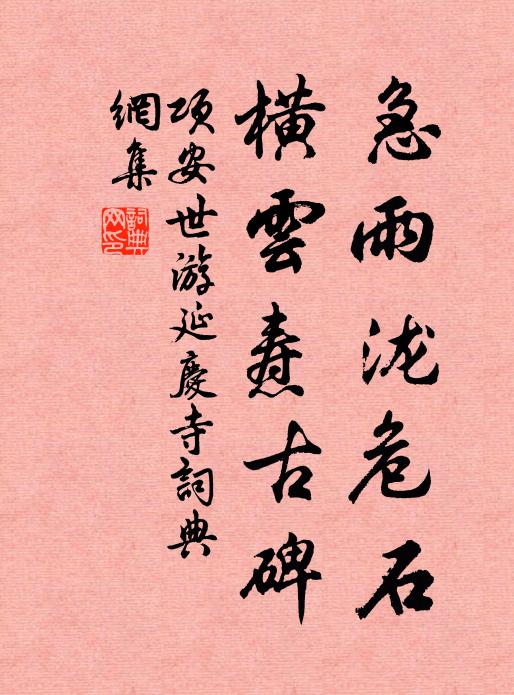 急雨泷危石
橫雲焘古碑
項安世游延慶寺詞典
網集
詞典
网印